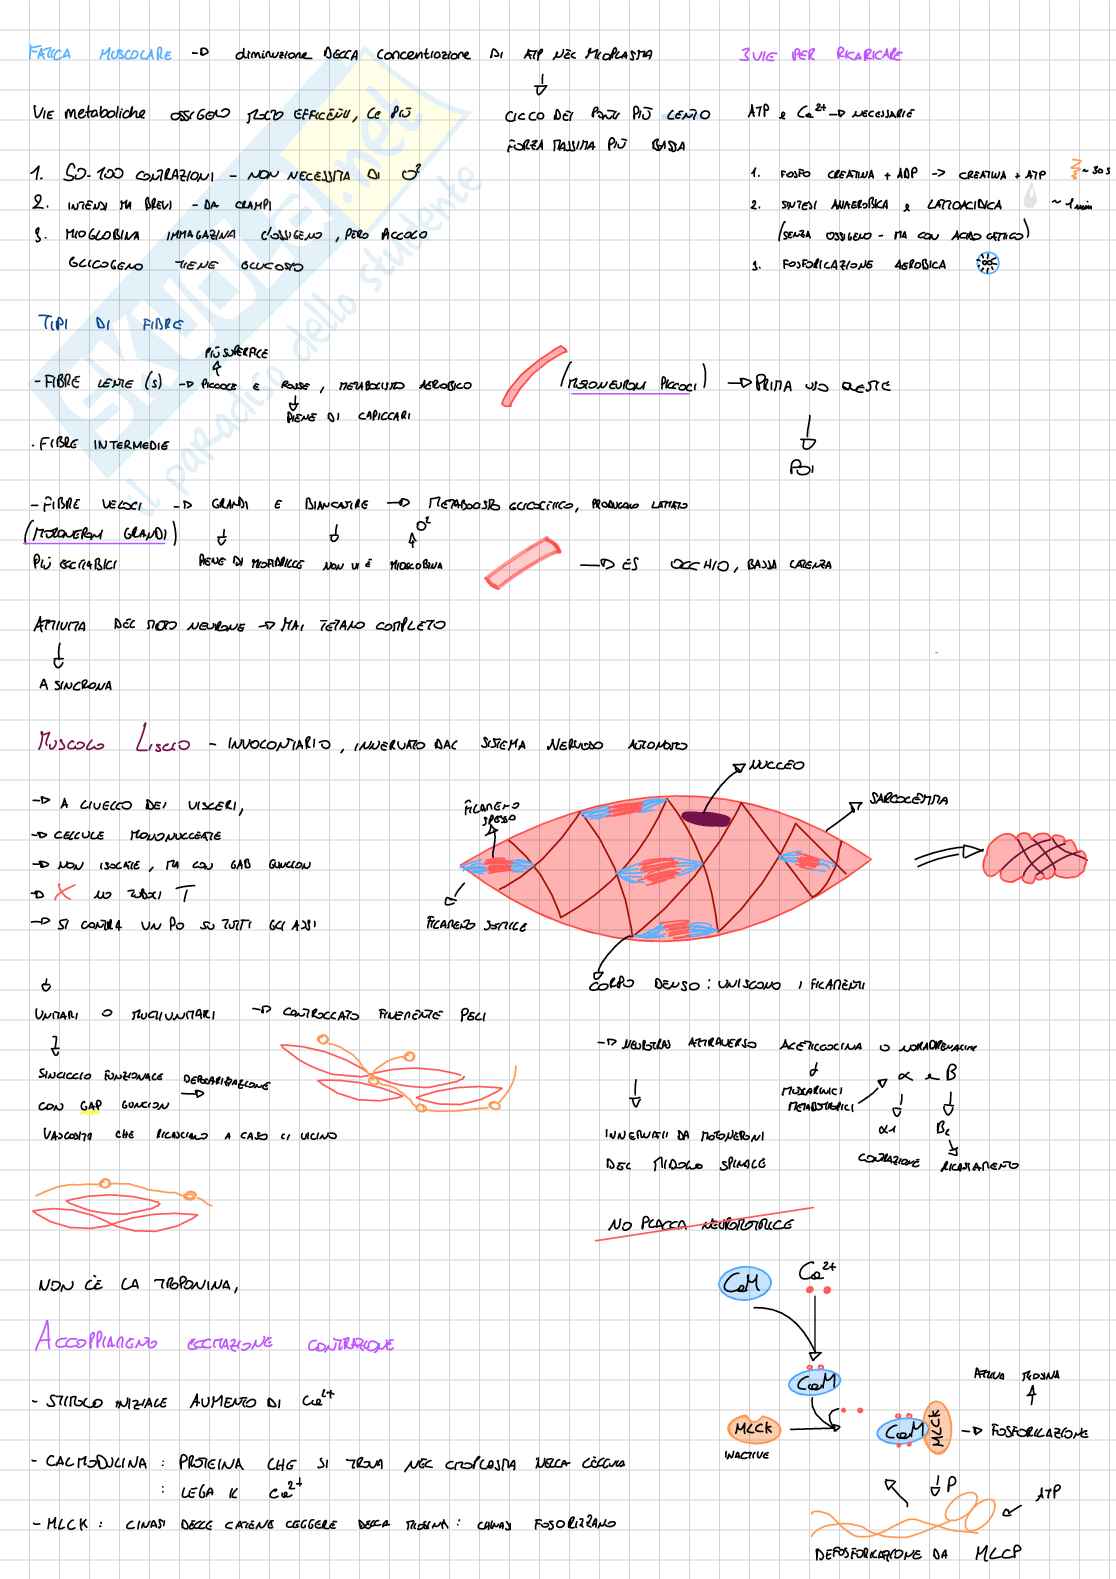 FATICA MUSCOLARE → diminuzione DELLA concentrazione DI ATP NEL MIOPLASMA
3 VIE PER RICARICARE
VIE metaboliche OSSIGENO MOLTO EFFICENTI, LE PIÙ
CICLO DEI PONTI PIÙ LENTO
FORZA MASSIMA PIÙ BASSA
ATP e Ca²⁺ → NECESSARIE
1. 50-100 CONTRAZIONI - NON NECESSITA DI O²
2. INTENSI MA BREVI - DA CRAMPI
3. MIOGLOBINA IMMAGAZINA L'OSSIGENO, PERO PICCOLO
GLICOGENO TIENE GLUCOSIO
1. FOSFO CREATINA + ADP → CREATINA + ATP ~30s
2. SINTESI ANAEROBICA e LATTOACIDICA ~1 min
(SENZA OSSIGENO - MA CON ACIDO LATTICO)
3. FOSFORICAZIONE AEROBICA
SKUOLA.net
il paradiso dello studente
TIPI DI FIBRE
PIÙ SUPERFICE
- FIBRE LENTE (S) → PICCOLE E ROSSE, METABOLISMO AEROBICO
PIENE DI CAPILLARI
(MOTONEURONI PICCOLI) → PRIMA USO QUESTE
POI
• FIBRE INTERMEDIE
- FIBRE VELOCI → GRANDI E BIANCASTRE → METABOLISMO GLICOLITICO, PRODUCONO LATTATO
(MOTONERONI GRANDI)
PIÙ ECCITABILI
PIENE DI MIOFIBRILLE NON VI È MIOGLOBINA
O²
→ ES OCCHIO, BASSA LATENZA
ATTIVITÀ DEL MOTO NEURONE → MAI TETANO COMPLETO
A SINCRONA
MUSCOLO LISCIO - INVOLONTARIO, INNERVATO DAL SISTEMA NERVOSO AUTONOMO
→ A LIVELLO DEI VISCERI,
→ CELLULE MONONUCLEATE
→ NON ISOLATE, MA CON GAB GIUNCION
→ X NO TUBULI T
→ SI CONTRA UN PO SU TUTTI GLI ASSI
NUCLEO
SARCOLEMMA
FILAMENTO SPESSO
FILAMENTO SOTTILE
CORPO DENSO : UNISCONO I FILAMENTI
UNITARI O MULTIUNITARI → CONTROLLATO FINEMENTE PELI
SINCICCIO FUNZIONALE DEPOLARIZZAZIONE
CON GAP GUNCION
VARICOSITÀ CHE RILASCIANO A CASO LI VICINO
→ NEUROTRAS ATTRAVERSO ACETILCOLINA O NORADRENALINA
MUSCARINICI
METABOTROPICI
α e B
α1 B₂
CONTRAZIONE RILASSAMENTO
INNERVATI DA MOTONERONI
DEL MIDOLLO SPINALE
NO PLACCA NEUROMOTRICE
NON CÈ LA TROPONINA,
ACCOPPIAMENTO ECCITAZIONE CONTRAZIONE
- STIMOLO INIZIALE AUMENTO DI Ca²⁺
- CALMODULINA : PROTEINA CHE SI TROVA NEL CITOPLASMA NELLA CELLULA
: LEGA IL Ca²⁺
- MLCK : CINASI DELLE CATENE LEGGERE DELLA MIOSINA : CHINASI FOSFORIZZANO
CaM
Ca²⁺
CaM
MLCK
INACTIVE
CaM MLCK
→ FOSFORICAZIONE
ATTIVA MIOSINA
P
ATP
DEFOSFORICAZIONE DA MLCP